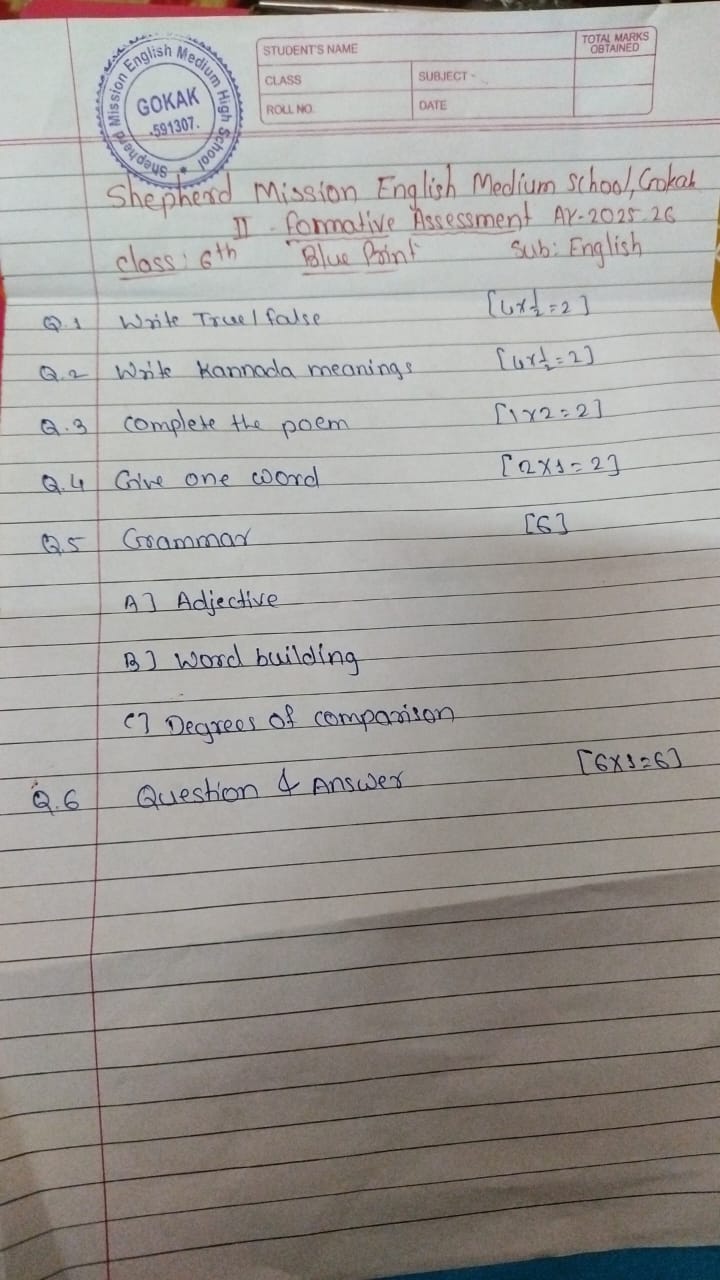 Shepherd Mission English Medium High School
GOKAK
591307.
STUDENT'S NAME
TOTAL MARKS OBTAINED
CLASS
SUBJECT -
ROLL NO.
DATE
Shepherd Mission English Medium School, Gokak
II - Formative Assessment AY-2025-26
class: 6th Blue Print Sub: English
Q.1 Write True/false [4x½=2]
Q.2 Write Kannada meanings [4x½=2]
Q.3 Complete the poem [1x2=2]
Q.4 Give one word [2x1=2]
Q.5 Grammar [6]
A] Adjective
B] Word building
C] Degrees of comparison
Q.6 Question & Answer [6x1=6]